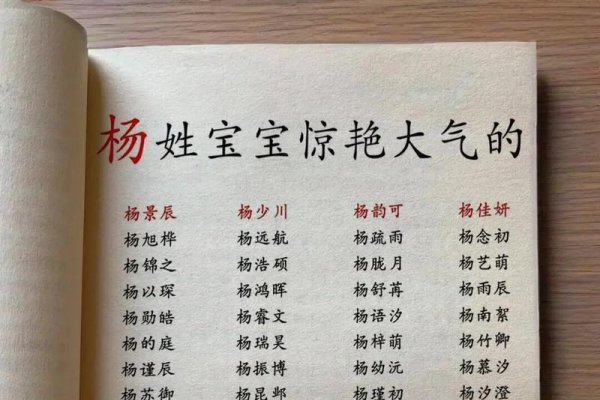 杨姓宝宝惊艳大气的
杨景辰 杨少川 杨韵可 杨佳妍
杨旭桦 杨远航 杨疏雨 杨念初
杨锦之 杨浩硕 杨胧月 杨艺萌
杨以琛 杨鸿晖 杨舒苒 杨雨辰
杨勋皓 杨睿文 杨语汐 杨南絮
杨的庭 杨瑞昊 杨梓萌 杨竹卿
杨谨辰 杨振博 杨幼沅 杨慕汐
杨苏御 杨昆邺 杨瑾初 杨汐澄